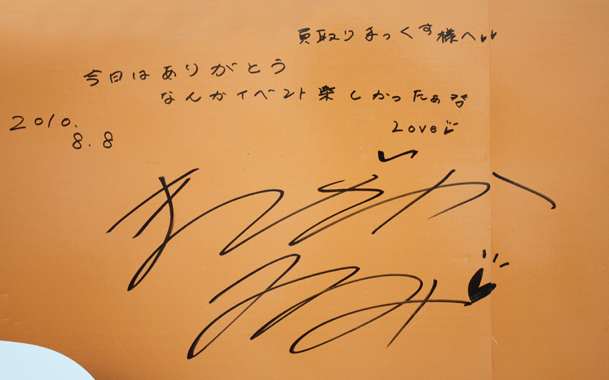 買取りまっくす様へ
今日はありがとう
なんかイベント楽しかったぁ
2010.
8.8
Love